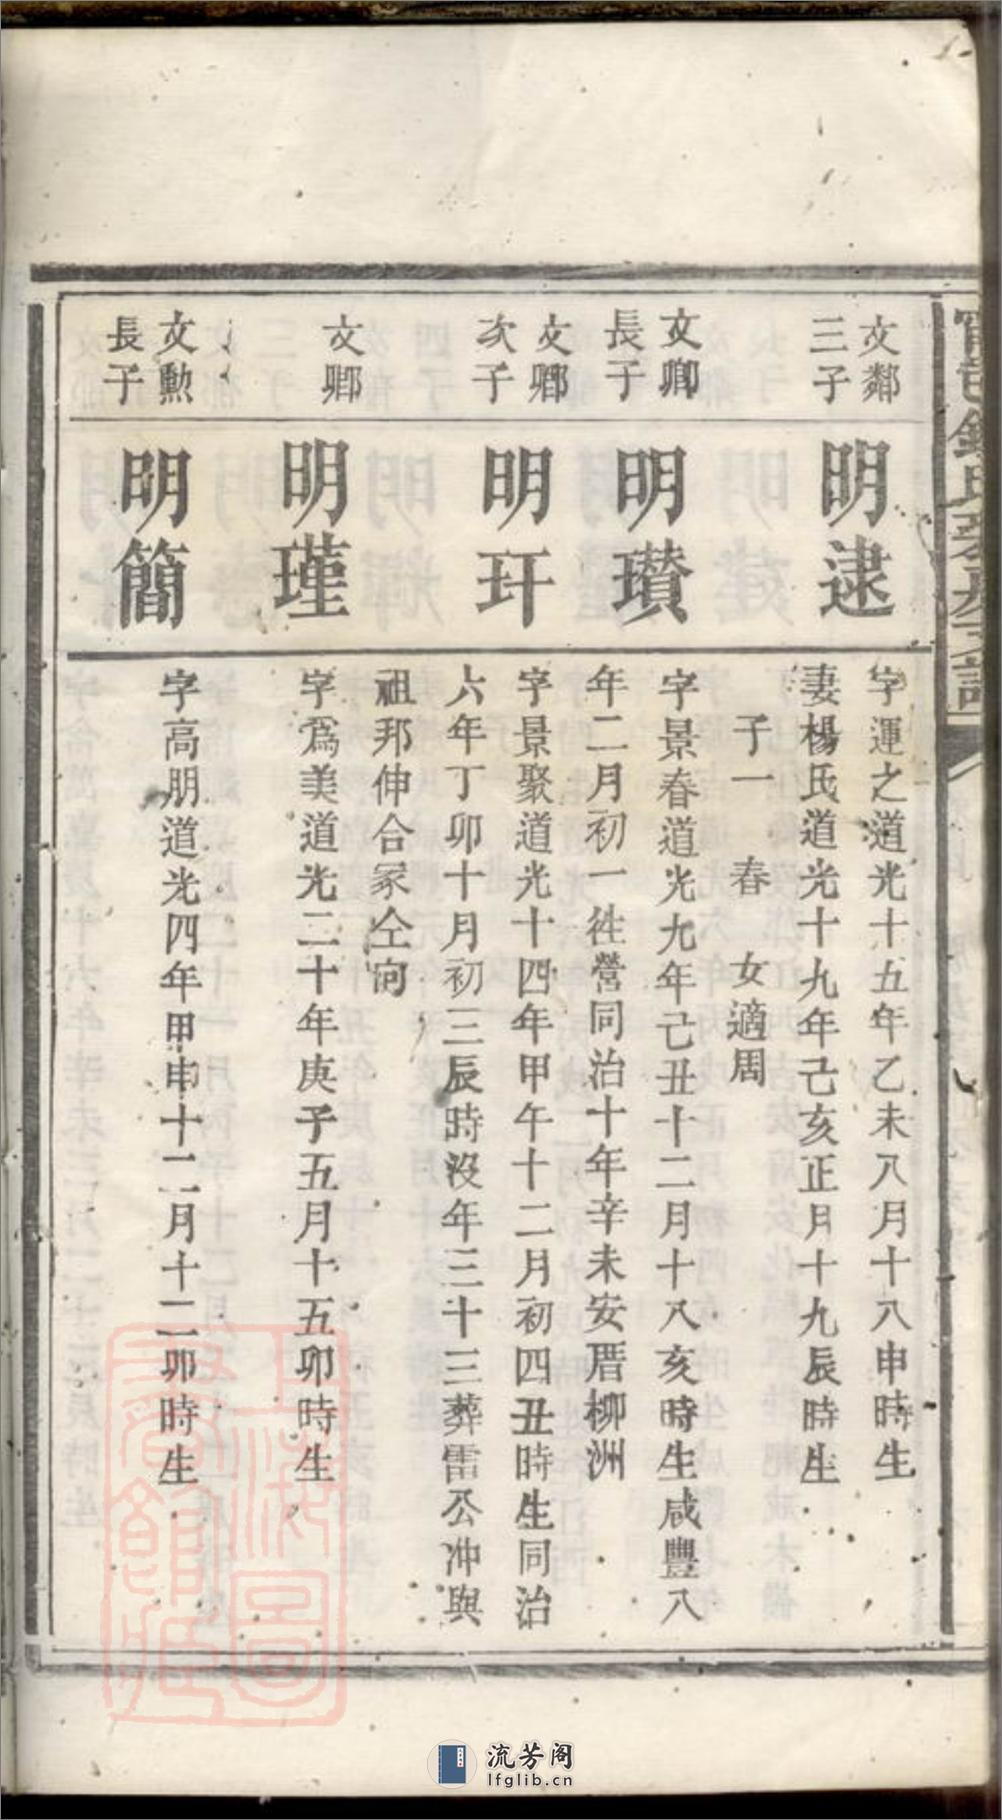 文鄰
三子
明逮
字運之道光十五年乙未八月十八申時生
妻楊氏道光十九年己亥正月十九辰時生
子一 春 女適周
文卿
長子
明瓚
字景春道光九年己丑十二月十八亥時生咸豐八
年二月初一徃營同治十年辛未安厝柳洲
文卿
次子
明玕
字景聚道光十四年甲午十二月初四丑時生同治
六年丁卯十月初三辰時沒年三十三葬雷公冲與
祖邦伸合冢仝向
文卿
明瑾
字爲美道光二十年庚子五月十五卯時生
文勲
長子
明簡
字高朋道光四年甲申十二月十二卯時生
上海圖
書館藏
流芳阁
lfglib.cn